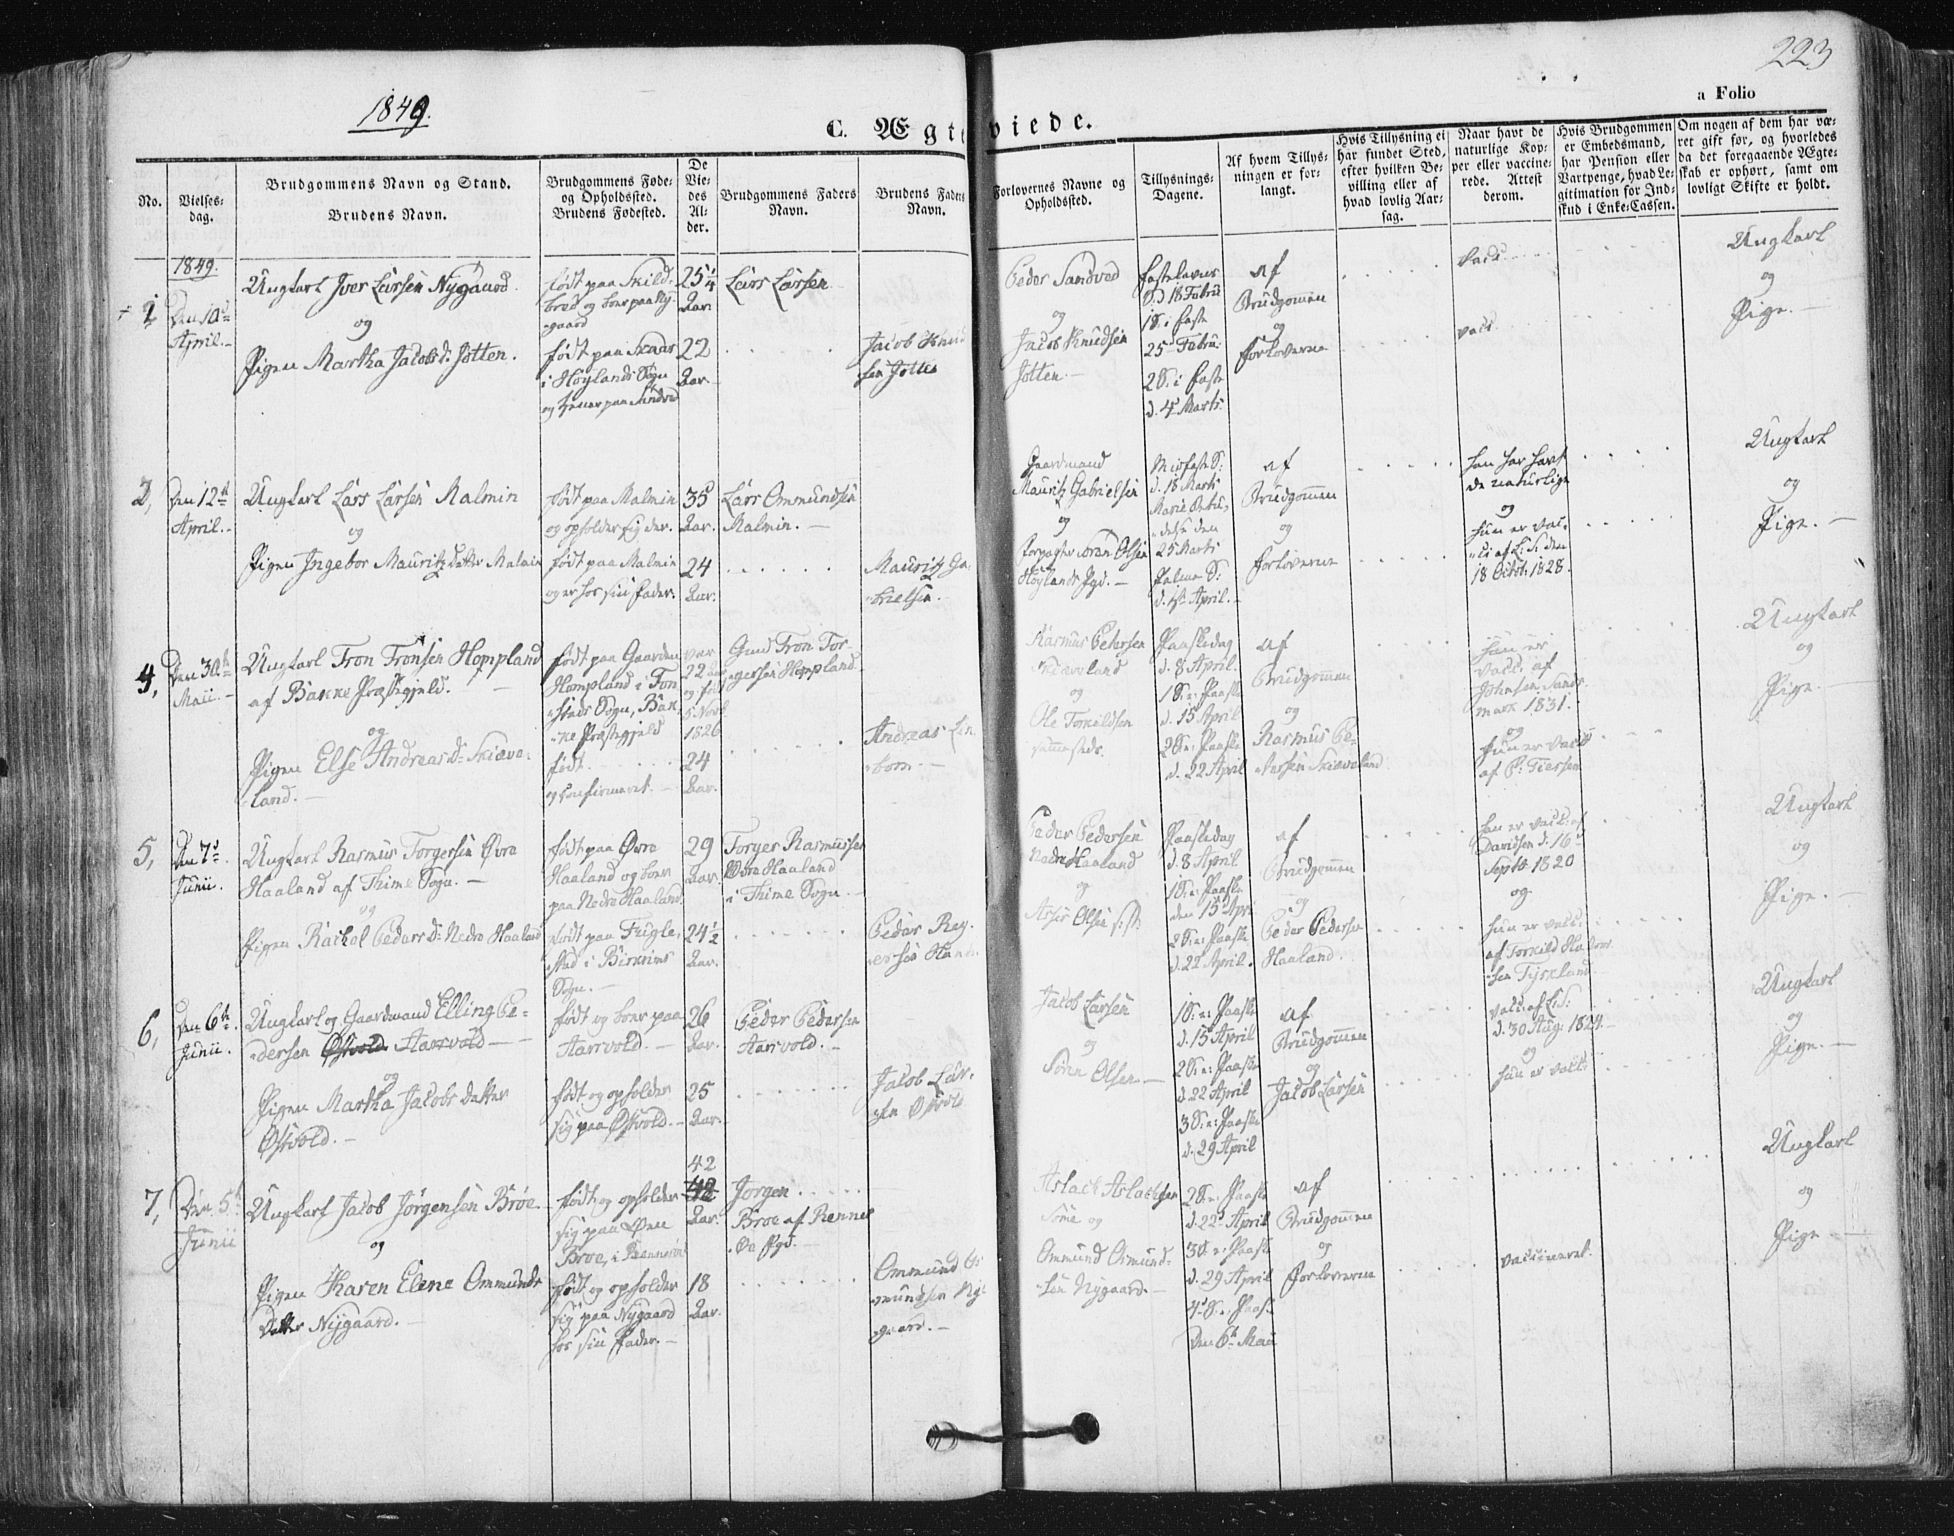 1849.
223
a Folio
C. Ægteviede.
No.
Vielses-
dag.
Brudgommens Navn og Stand.
Brudens Navn.
Brudgommens Føde-
og Opholdssted.
Brudens Fødested.
De
Vie-
des
Al-
der.
Brudgommens Faders
Navn.
Brudens Faders
Navn.
Forlovernes Navne og
Opholdssted.
Tillysnings-
Dagene.
Af hvem Tillys-
ningen er for-
langt.
Hvis Tillysning ei
har fundet Sted,
efter hvilken Be-
villing eller af
hvad lovlig Aar-
sag.
Naar havt de
naturlige Kop-
per eller vaccine-
rede. Attest
derom.
Hvis Brudgommen
er Embedsmand,
har Pension eller
Vartpenge, hvad Le-
gitimation for Ind-
skud i Enke-Cassen.
Om nogen af dem har væ-
ret gift før, og hvorledes
da det foregaaende Ægte-
skab er ophørt, samt om
lovligt Skifte er holdt.
1849.
1
Den 10de
April.
Ungkarl Iver Larsen Nygaard
og
Pigen Martha Jacobsd: Jotten.
født paa Skild-
broe og boer paa Ny-
gaard
født paa
i Höylands Sogn
og tiener paa Sandved
25 1/4
Aar.
22
Aar.
Lars Larsen
Jacob Knud
sen Jotten
Peder Sandved
og
Jacob Knudsen
Jotten.
Fastelavns
S: d 18 Febru
1 S: i Faste
25 Febru:
2 S: i Faste
d. 4 Marts.
af
Brudgomen
og
Forloverne
vacc.
vacc.
Ungkarl
og
Pige.
2,
Den 12te
April.
Ungkarl Lars Larsen Malmin
og
Pigen Ingebor Mauritz Datter Malmin
født paa Malmin
og opholder sig der.
født paa Malmin
og er hos sin Fader.
35
Aar.
24
Aar.
Lars Ommundsen
Malmin.
Mauritz Ga-
brielsen.
Gaardmand
Mauritz Gabrielsen
og
Forpagter Sören Olsen
Höylands Pgd.
Midfaste S:
d. 18 Marts
Mariæ Bebu-
delse den
25 Marts
Palme S:
d. 1ste April.
af
Brudgommen
og
Forloverne
han har havt
de naturlige
og
hun er vac-
ci: af L: S: den
18 Octob: 1828.
Ungkarl
og
Pige.
4,
Den 30te
Maii.
Ungkarl Tron Tronsen Hompland
af Bakke Præstegjeld.
og
Pigen Else Andreasd: Skiæve-
land.
født paa Gaarden
Hompland i Ton
stads Sogn, Bak-
ke Præstegjeld
født
og confirmeret.
var
22 Aar
og født
5 Novb
1826
24
Aar.
Gmd Tron Tor-
gersen Hompland.
Andreas
Rasmus Pedersen
Skiæveland
og
Ole Torkildsen
sammesteds.
Paaskedag
d. 8 April.
1 S: e: Paaske
d. 15 April
2 S: e: Paaske
d. 22 April
af
Brudgommen
og
Rasmus Pe-
dersen Skiæveland
vacc. af
Johnsen
mark 1831.
og
hun er vacci
af P: Tiersen
Ungkarl
og
Pige.
5,
Den 7de
Junii.
Ungkarl Rasmus Torgersen Øvre
Haaland af Thime Sogn.
og
Pigen Rachel Pedersd: Nedre Haaland
født paa Øvre
Haaland og boer
paa Nedre Haaland.
født paa Fugle-
stad i Birkrims
Sogn.
29
Aar.
24 1/2
Aar.
Torger Rasmussen
Øvre Haaland
i Thime Sogn.
Peder
Peder Pedersen
Nedre Haaland
og
Asser Olsen
Paaskedag
d. 8 April.
1 S: e: Paaske
den 15 Apri
2 S: e: Paaske
d. 22 April.
af
Brudgommen
og
Peder Pedersen
Haaland.
han er vacc: af
Davidsen d: 16
Septb: 1820
og
hun er vacc:
af Torkild
Ungkarl
og
Pige.
6,
Den 6te
Junii.
Ungkarl og Gaardmand Elling Pe-
dersen Østvold Aarrvold
og
Pigen Martha Jacobs Datter
Østvold.
født og boer paa
Aarrvold.
født og opholder
sig paa Østvold.
26
Aar.
25
Aar.
Peder Pedersen
Aarrvold.
Jacob Lar-
sen Østvold
Jacob Larsen
og
Sören Olsen
1 S: e: Paaske
d. 15 April
2 S: e: Paaske
d. 22 April
3 S: e: Paaske
d. 29 April
af
Brudgommen
og
Jacob Larsen
vacc. af L: S:
d. 30 Aug: 1824.
og
hun er vacci
Ungkarl
og
Pige.
7,
Den 5te
Junii
Ungkarl Jacob Jörgensen Bröe.
og
Pigen Karen Elene Ommunds
Datter Nygaard.
født og opholder
sig paa Øen
Broe, i Rennesöe
født og opholder
sig paa Nygaard
hos sin Fader.
42
42
Aar.
18
Aar.
Jörgen
Broe af Rennes
Öe Pgd.
Ommund Os
mundsen Ny-
gaard.
Aslack Aslacksen
Sōme og
Ommund Osmund-
sen Nygaard.
2 S: e: Paaske
d. 22 April
3 S: e: Paaske
d. 29 April
4 S: e: Paaske
Den 6te Maii
af
Brudgommen
og
Forloverne
vaccineret.
Ungkarl
og
Pige